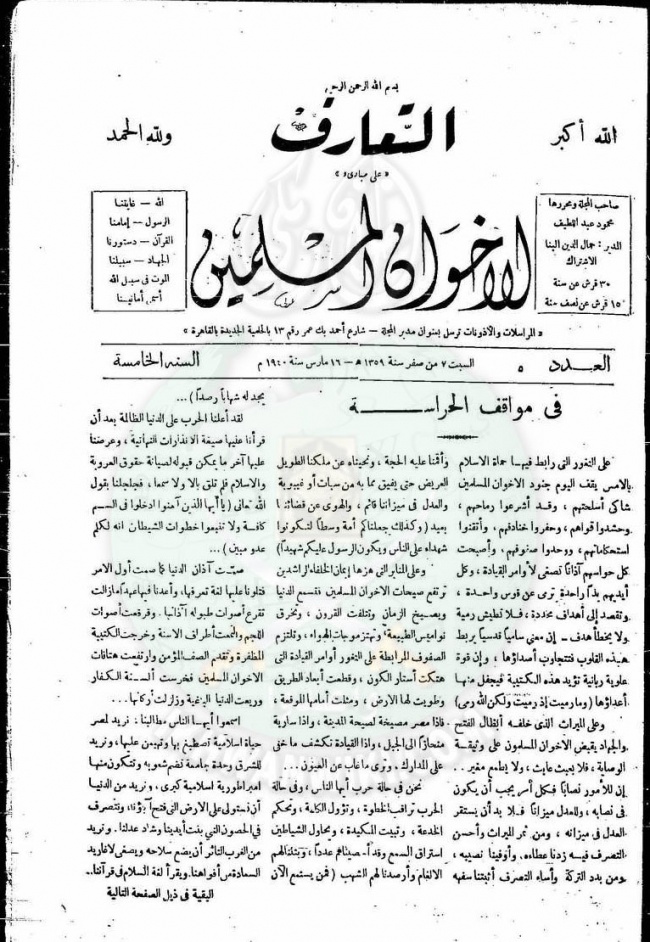 بسم الله الرحمن الرحيم
الله أكبر
التعارف
ولله الحمد
« على مبادىء »
صاحب المجلة ومحررها
محمود عبد اللطيف
المدير : جمال الدين البنا
الاشتراك
٣٠ قرش عن سنة
١٥ قرش عن نصف سنة
الاخوان المسلمين
الله — غايتنا
الرسول — إمامنا
القرآن — دستورنا
الجهاد — سبيلنا
الموت فى سبيل الله
أسمى أمانينا
« المراسلات والأذونات ترسل بعنوان مدير المجلة — شارع أحمد بك عمر رقم ١٣ بالحلمية الجديدة بالقاهرة »
العدد ٥
السبت ٧ من صفر سنة ١٣٥٩ هـ — ١٦ مارس سنة ١٩٤٠ م
السنة الخامسة
فى مواقف الحراسة
على الثغور التى رابط فيها حماة الاسلام
بالامس يقف اليوم جنود الاخوان المسلمين
شاكى أسلحتهم ، وقد أشرعوا رماحهم ،
وحشدوا قواهم ، وحفروا خنادقهم ، وأتقنوا
استحكاماتهم ، ووحدوا صفوفهم ، وأصبحت
كل حواسهم آذاناً تصغى لأوامر القيادة ، وكل
أيديهم يداً واحدة ترمى عن قوس واحدة ،
وتقصد إلى أهداف محددة ، فلا تطيش رمية
ولا يخطأ هدف — إن معنى سامياً قدسياً يربط
هذه القلوب فتتجاوب أصداؤها ، وإن قوة
علوية ربانية تؤيد هذه الكتيبة فيجفل منها
أعداؤها ( وما رميت إذ رميت ولكن الله رمى )
وعلى الميراث الذى خلفه أبطال الفتح
والجهاد يقبض الاخوان المسلمون على وثيقة
الوصاية ، فلا يعبث عابث ، ولا يطمع مغير ..
إن للأمور نصاباً فلكل أمر يجب أن يكون
فى نصابه ، وللعدل ميزاناً فلا بد أن يستقر
العدل فى ميزانه ، ومن ثمر الميراث وأحسن
التصرف فيه زدنا عطاءه، وأوفينا نصيبه ،
ومن بدد التركة وأساء التصرف أثبتنا سفهه
وأقمنا عليه الحجة ، ونحيناه عن ملكنا الطويل
العريض حتى يفيق مما به من سبات أو غيبوبة
والعدل فى ميزاننا قائم ، والهوى عن قضائنا
بعيد ( وكذلك جعلناكم أمة وسطاً لتكونوا
شهداء على الناس ويكون الرسول عليكم شهيداً )
وعلى المنابر التى هزها إيمان الخلفاء الراشدين
ترتفع صيحات الاخوان المسلمين فتسمع الدنيا
ويصيخ الزمان وتتلفت القرون ، وتخرق
نواميس الطبيعة وتهتز موجات الهواء ، وتلتزم
الصفوف المرابطة على الثغور أوامر القيادة التى
هتكت أستار الكون ، وقطعت أبعاد الطريق
وطويت لها الارض ، ومثلت أمامها الموقعة ،
فاذا مصر مصيخة لصيحة المدينة ، واذا سارية
منحازاً الى الجبل ، واذا القيادة تكشف ما خفى
على المدارك ، وترى ما غاب عن العيون ...
نحن فى حالة حرب أيها الناس ، وفى حالة
الحرب تراقب الخطوة ، وتؤول الكلمة ، وتحكم
الخدعة ، وتبيت المكيدة ، ويحاول الشياطين
استراق السمع وقد أحصيناهم عدداً ، وبثثنا لهم
الالغام وأرصدنا لهم الشهب ( فمن يستمع الآن
يجد له شهاباً رصداً ) ...
لقد أعلنا الحرب على الدنيا الظالمة بعد أن
قرأنا عليها صيغة الانذارات النهائية ، وعرضنا
عليها آخر ما يمكن قبوله لصيانة حقوق العروبة
والاسلام فلم تلق بالا ولا سمعا ، فجلجلنا بقول
الله تعالى ( يا أيها الذين آمنوا ادخلوا فى السلم
كافة ولا تتبعوا خطوات الشيطان انه لكم
عدو مبين ) ...
صمت آذان الدنيا كما صمت أول الامر
فتلونا عليها لغة تعرفها، وأعدنا فيها عهداً ما زالت
تقرع أصوات طبوله آذانها . وقرقعت أصوات
اللجم والتمعت أطراف الاسنة وخرجت الكتيبة
المظفرة وتقدم الصف المؤمن وارتفعت هتافات
الاخوان المسلمين فخرست ألسنة الكفار
وريعت الدنيا الباغية وزلزلت أركانها ...
اسمعوا أيها الناس مطالبنا : نريد لمصر
حياة اسلامية تصطبغ بها وتهيمن عليها ، ونريد
للشرق وحدة جامعة تضم شعوبه وتتكون منها
امبراطورية اسلامية كبرى ، ونريد من الدنيا
أن نستولى على الارض التى فتحها آباؤنا، ونتصرف
فى الحصون التى بنت أيدينا وشاد عدلنا . ونريد
من الغرب الثائر أن يضع سلاحه ويصغى لأغاريد
السعادة من أفواهنا، ويقرأ لغة السلام فى قرآننا..
البقية فى ذيل الصفحة التالية